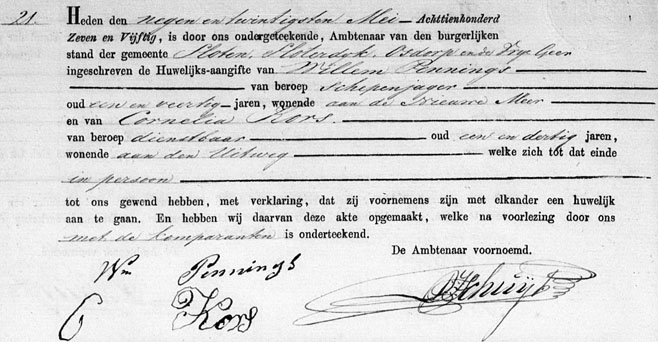 21. Heden den negen en twintigsten Mei – Achttienhonderd
Zeven en Vijftig, is door ons ondergeteekende, Ambtenaar van den burgerlijken
stand der gemeente Sloten, Sloterdyk, Osdorp en de Vrye Geer
ingeschreven de Huwelijks-aangifte van Willem Pennings
van beroep Schepenjager
oud een en veertig jaren, wonende aan de Nieuwe Meer
en van Cornelia Kors.
van beroep dienstbaar oud een en dertig jaren,
wonende aan den Uitweg welke zich tot dat einde
in persoon
tot ons gewend hebben, met verklaring, dat zij voornemens zijn met elkander een huwelijk
aan te gaan. En hebben wij daarvan deze akte opgemaakt, welke na voorlezing door ons
met de Comparanten is onderteekend.
De Ambtenaar voornoemd.
Wm Pennings
C Kors